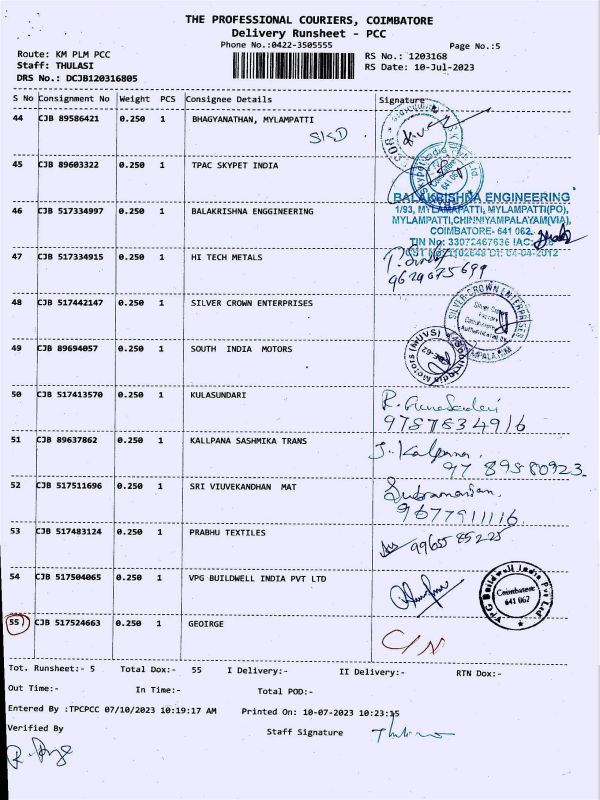 THE PROFESSIONAL COURIERS, COIMBATORE
Delivery Runsheet - PCC
Phone No.:0422-3505555 Page No.:5
Route: KM PLM PCC RS No.: 1203168
Staff: THULASI RS Date: 10-Jul-2023
DRS No.: DCJB120316805
S No Consignment No Weight PCS Consignee Details Signature
44 CJB 89586421 0.250 1 BHAGYANATHAN, MYLAMPATTI
SKD
45 CJB 89603322 0.250 1 TPAC SKYPET INDIA
BALAKRISHNA ENGINEERING
46 CJB 517334997 0.250 1 BALAKRISHNA ENGGINEERING
1/93, MYLAMAPATTI, MYLAMPATTI(PO),
MYLAMPATTI,CHINNIYAMPALAYAM(VIA),
COIMBATORE- 641 062.
TIN No: 33072467636 IAC:
47 CJB 517334915 0.250 1 HI TECH METALS
9629675699
48 CJB 517442147 0.250 1 SILVER CROWN ENTERPRISES
SILVER CROWN ENTERPRISES
49 CJB 89694057 0.250 1 SOUTH INDIA MOTORS
50 CJB 517413570 0.250 1 KULASUNDARI
9787834916
51 CJB 89637862 0.250 1 KALLPANA SASHMIKA TRANS
J. Kalpana
97 89580923.
52 CJB 517511696 0.250 1 SRI VIUVEKANDHAN MAT
Subramanian
9677911116
53 CJB 517483124 0.250 1 PRABHU TEXTILES
99655 85225
54 CJB 517504065 0.250 1 VPG BUILDWELL INDIA PVT LTD
VPG Buildwell India Pvt Ltd
Coimbatore
641 062
55 CJB 517524663 0.250 1 GEOIRGE
C/N
Tot. Runsheet:- 5 Total Dox:- 55 I Delivery:- II Delivery:- RTN Dox:-
Out Time:- In Time:- Total POD:-
Entered By :TPCPCC 07/10/2023 10:19:17 AM Printed On: 10-07-2023 10:23:15
Verified By Staff Signature